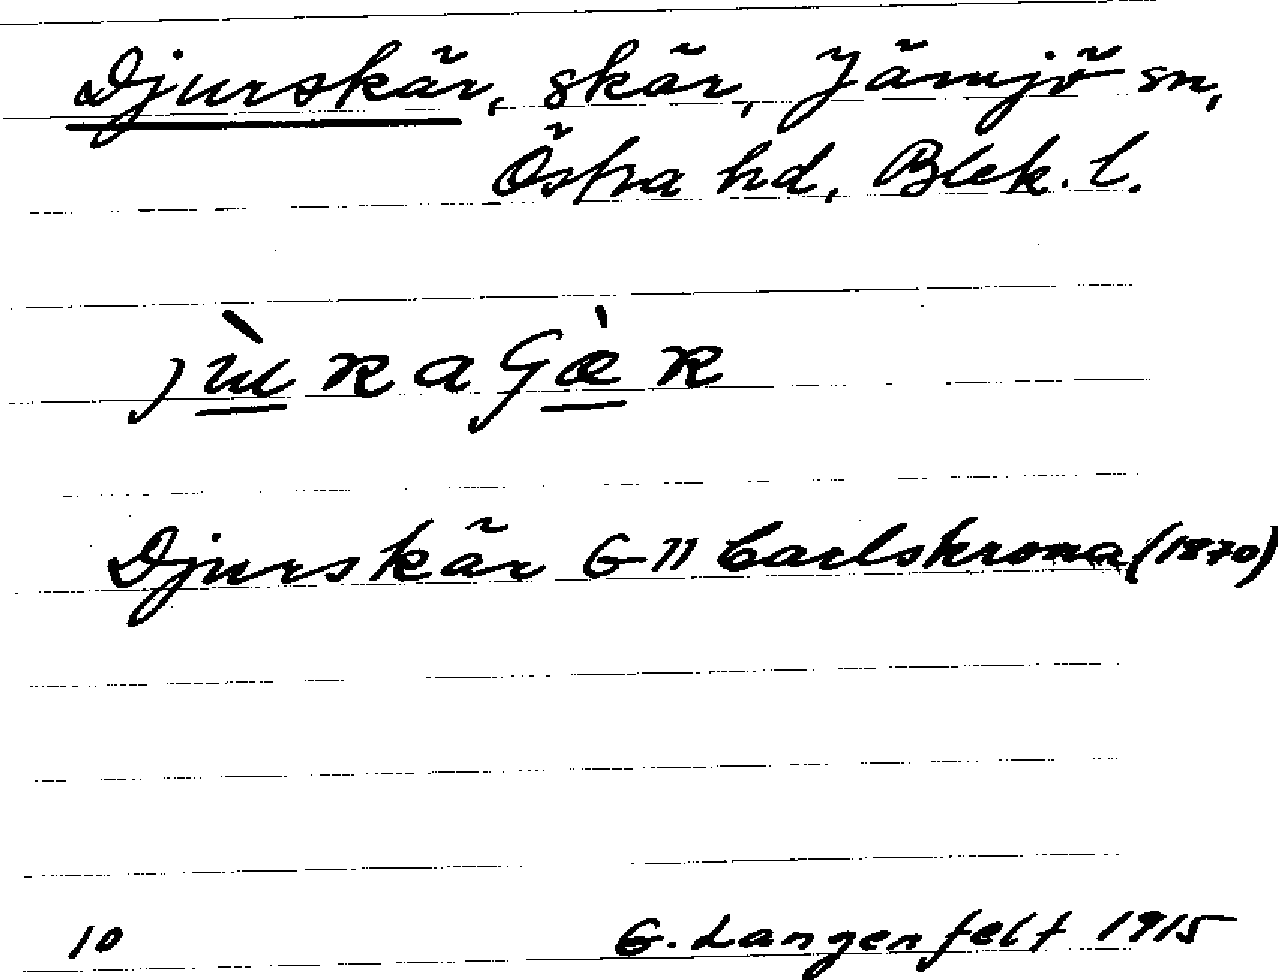 Djurskär, skär, Jämjö sn,
Östra hd, Blek. l.
Djurskär G-11 Carlskrona (1870)
10 G. Langenfelt 1915